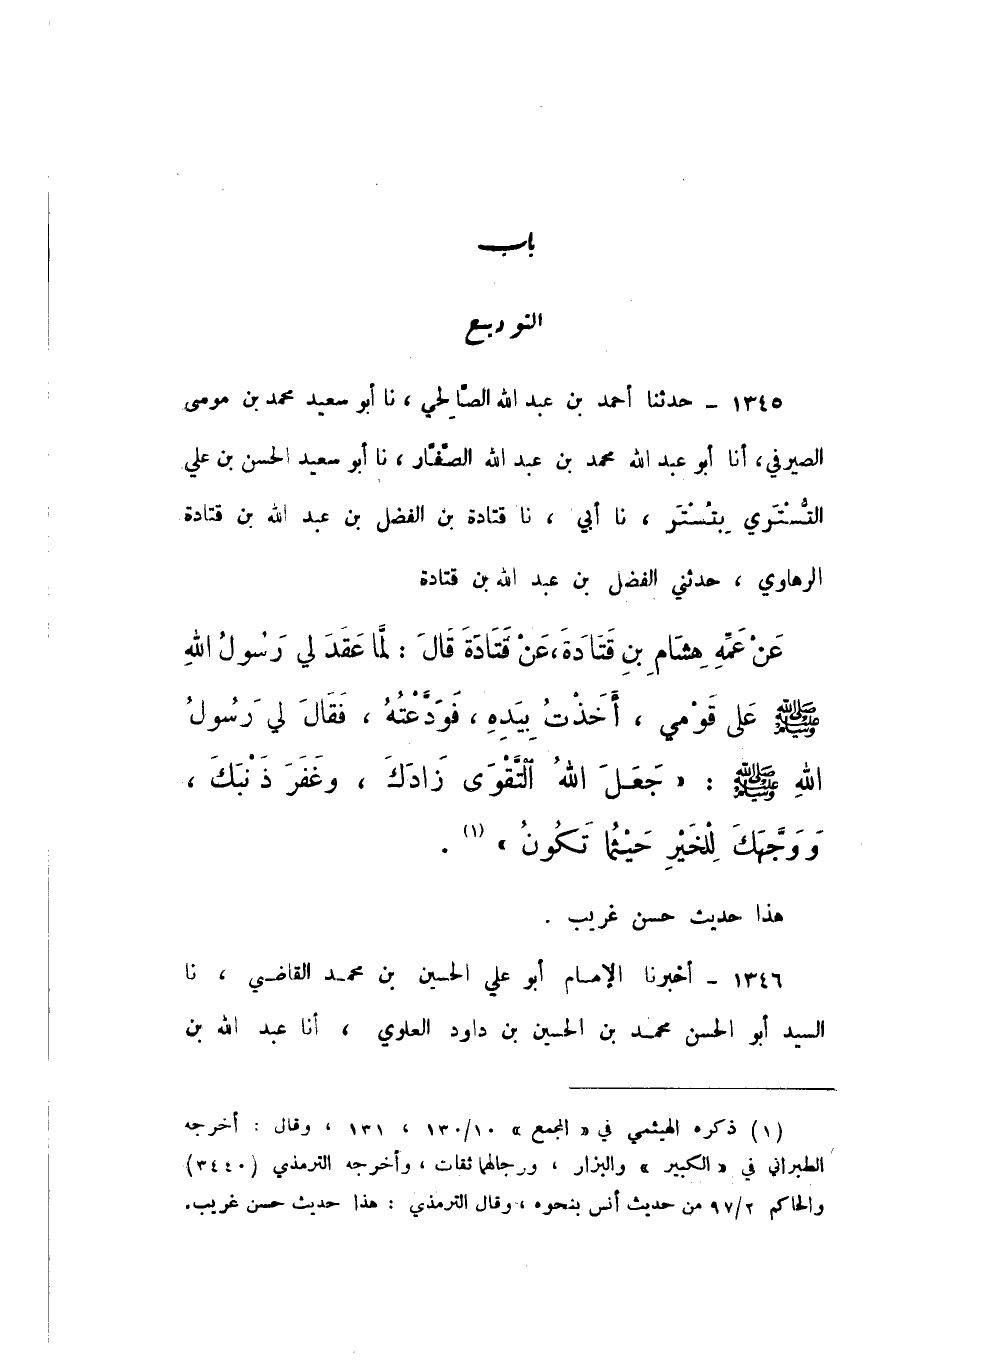 باب
التوديع
١٣٤٥ - حدثنا أحمد بن عبد الله الصَّالحي ، نا أبو سعيد محمد بن موسى
الصيرفي، أنا أبو عبد الله محمد بن عبد الله الصَّفَّار ، نا أبو سعيد الحسن بن علي
التُّسْتَري بِتُسْتَر ، نا أبي ، نا قتادة بن الفضل بن عبد الله بن قتادة
الرهاوي ، حدثني الفضل بن عبد الله بن قتادة
عَنْ عَمِّهِ هِشَامِ بنِ قَتَادَةَ،عَنْ قَتَادَةَ قَالَ : لَمَّا عَقَدَ لي رَسُولُ اللهِ
ﷺ عَلى قَوْمي ، أَخَذْتُ بِيَدِهِ ، فَوَدَّعْتُهُ ، فَقَالَ لي رَسُولُ
اللهِ ﷺ : « جَعَلَ اللهُ ٱلتَّقْوَى زَادَكَ ، وغَفَرَ ذَنْبَكَ ،
وَوَجَّهَكَ لِلْخَيْرِ حَيْثُما تَكُونُ » (١) .
هذا حديث حسن غريب .
١٣٤٦ - أخبرنا الإمام أبو علي الحسين بن محمد القاضي ، نا
السيد أبو الحسن محمد بن الحسين بن داود العلوي ، أنا عبد الله بن
(١) ذكره الهيثمي في « المجمع » ١٣٠/١٠ ، ١٣١ ، وقال : أخرجه
الطبراني في « الكبير » والبزار ، ورجالهما ثقات ، وأخرجه الترمذي (٣٤٤٠)
والحاكم ٩٧/٢ من حديث أنس بنحوه ، وقال الترمذي : هذا حديث حسن غريب.